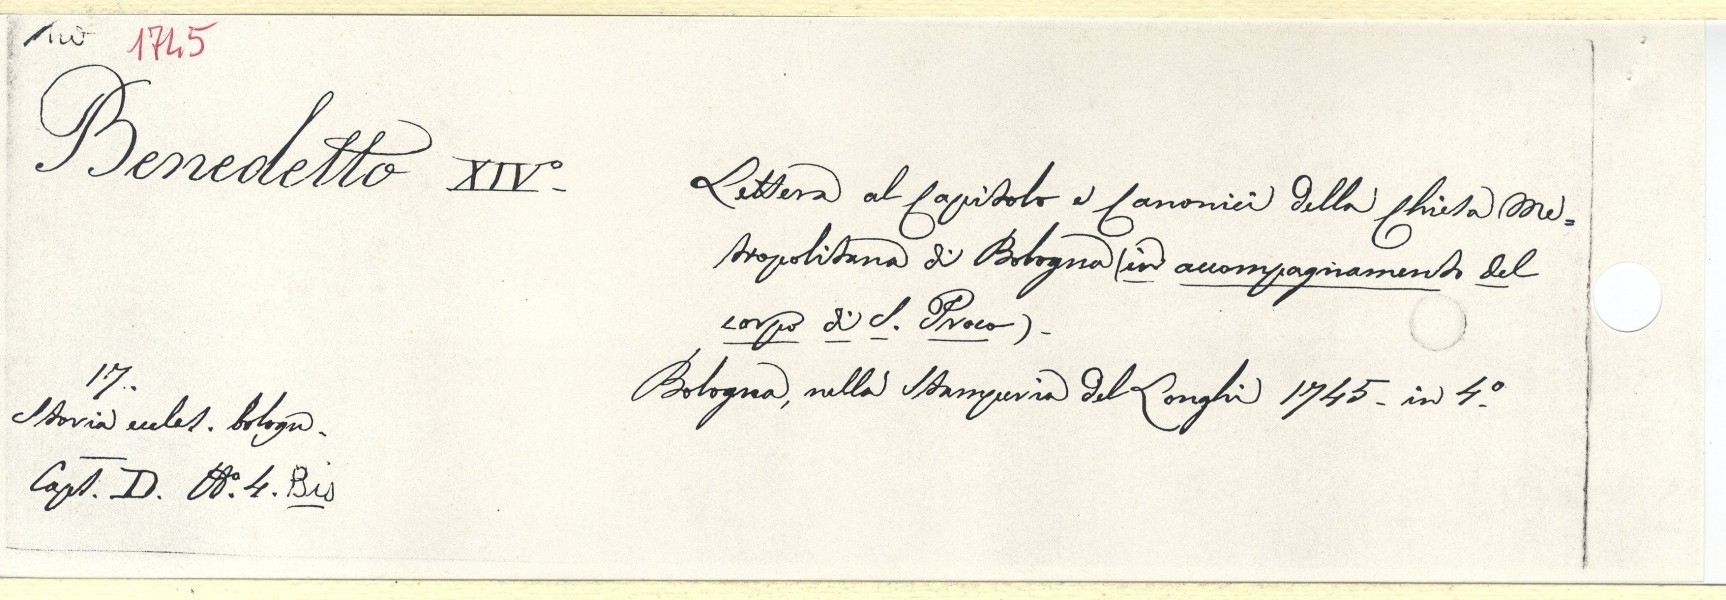 1745
Benedetto XIVº.
Lettera al Capitolo e Canonici della Chiesa Me=
tropolitana di Bologna (in accompagnamento del
corpo di S. Proco) -
Bologna, nella Stamperia del Longhi 1745 - in 4º.
17.
Storia eccles. bologn.
Capt. D. Nº. 4. Bis